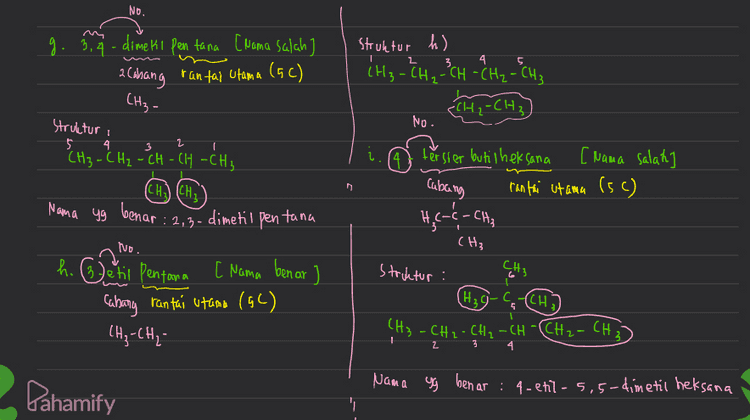 No.
g. 3,4 - dimetil pentana [Nama salah]
2 Cabang rantai utama (5C)
CH3-
Struktur :
5 4 3 2 1
CH3-CH2-CH-CH-CH3
CH3 CH3
Nama yg benar : 2,3-dimetil pentana
No.
h. 3-etil Pentana [Nama benar]
Cabang rantai utama (5C)
CH3-CH2-
Struktur h)
1 2 3 4 5
CH3-CH2-CH-CH2-CH3
CH2-CH3
No.
i. 4- tersier butil heksana [Nama salah]
Cabang rantai utama (5C)
H3C-C-CH3
CH3
Struktur :
CH3
6
H3C-C-CH3
5
CH3-CH2-CH2-CH-CH2-CH3
1 2 3 4
Nama yg benar : 4-etil-5,5-dimetil heksana
Pahamify